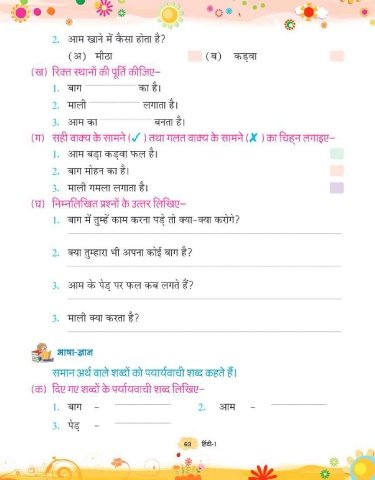 2. आम खाने में कैसा होता है?
(अ) मीठा (ब) कड़वा
(ख) रिक्त स्थानों की पूर्ति कीजिए–
1. बाग ___________ का है।
2. माली ___________ लगाता है।
3. आम का ___________ बनता है।
(ग) सही वाक्य के सामने (✓) तथा गलत वाक्य के सामने (✗) का चिह्न लगाइए–
1. आम बड़ा कड़वा फल है।
2. बाग मोहन का है।
3. माली गमला लगाता है।
(घ) निम्नलिखित प्रश्नों के उत्तर लिखिए–
1. बाग में तुम्हें काम करना पड़े तो क्या-क्या करोगे?
2. क्या तुम्हारा भी अपना कोई बाग है?
3. आम के पेड़ पर फल कब लगते हैं?
3. माली क्या करता है?
भाषा-ज्ञान
समान अर्थ वाले शब्दों को पर्यायवाची शब्द कहते हैं।
(क) दिए गए शब्दों के पर्यायवाची शब्द लिखिए–
1. बाग – ___________ 2. आम – ___________
3. पेड़ – ___________
63 हिंदी-1